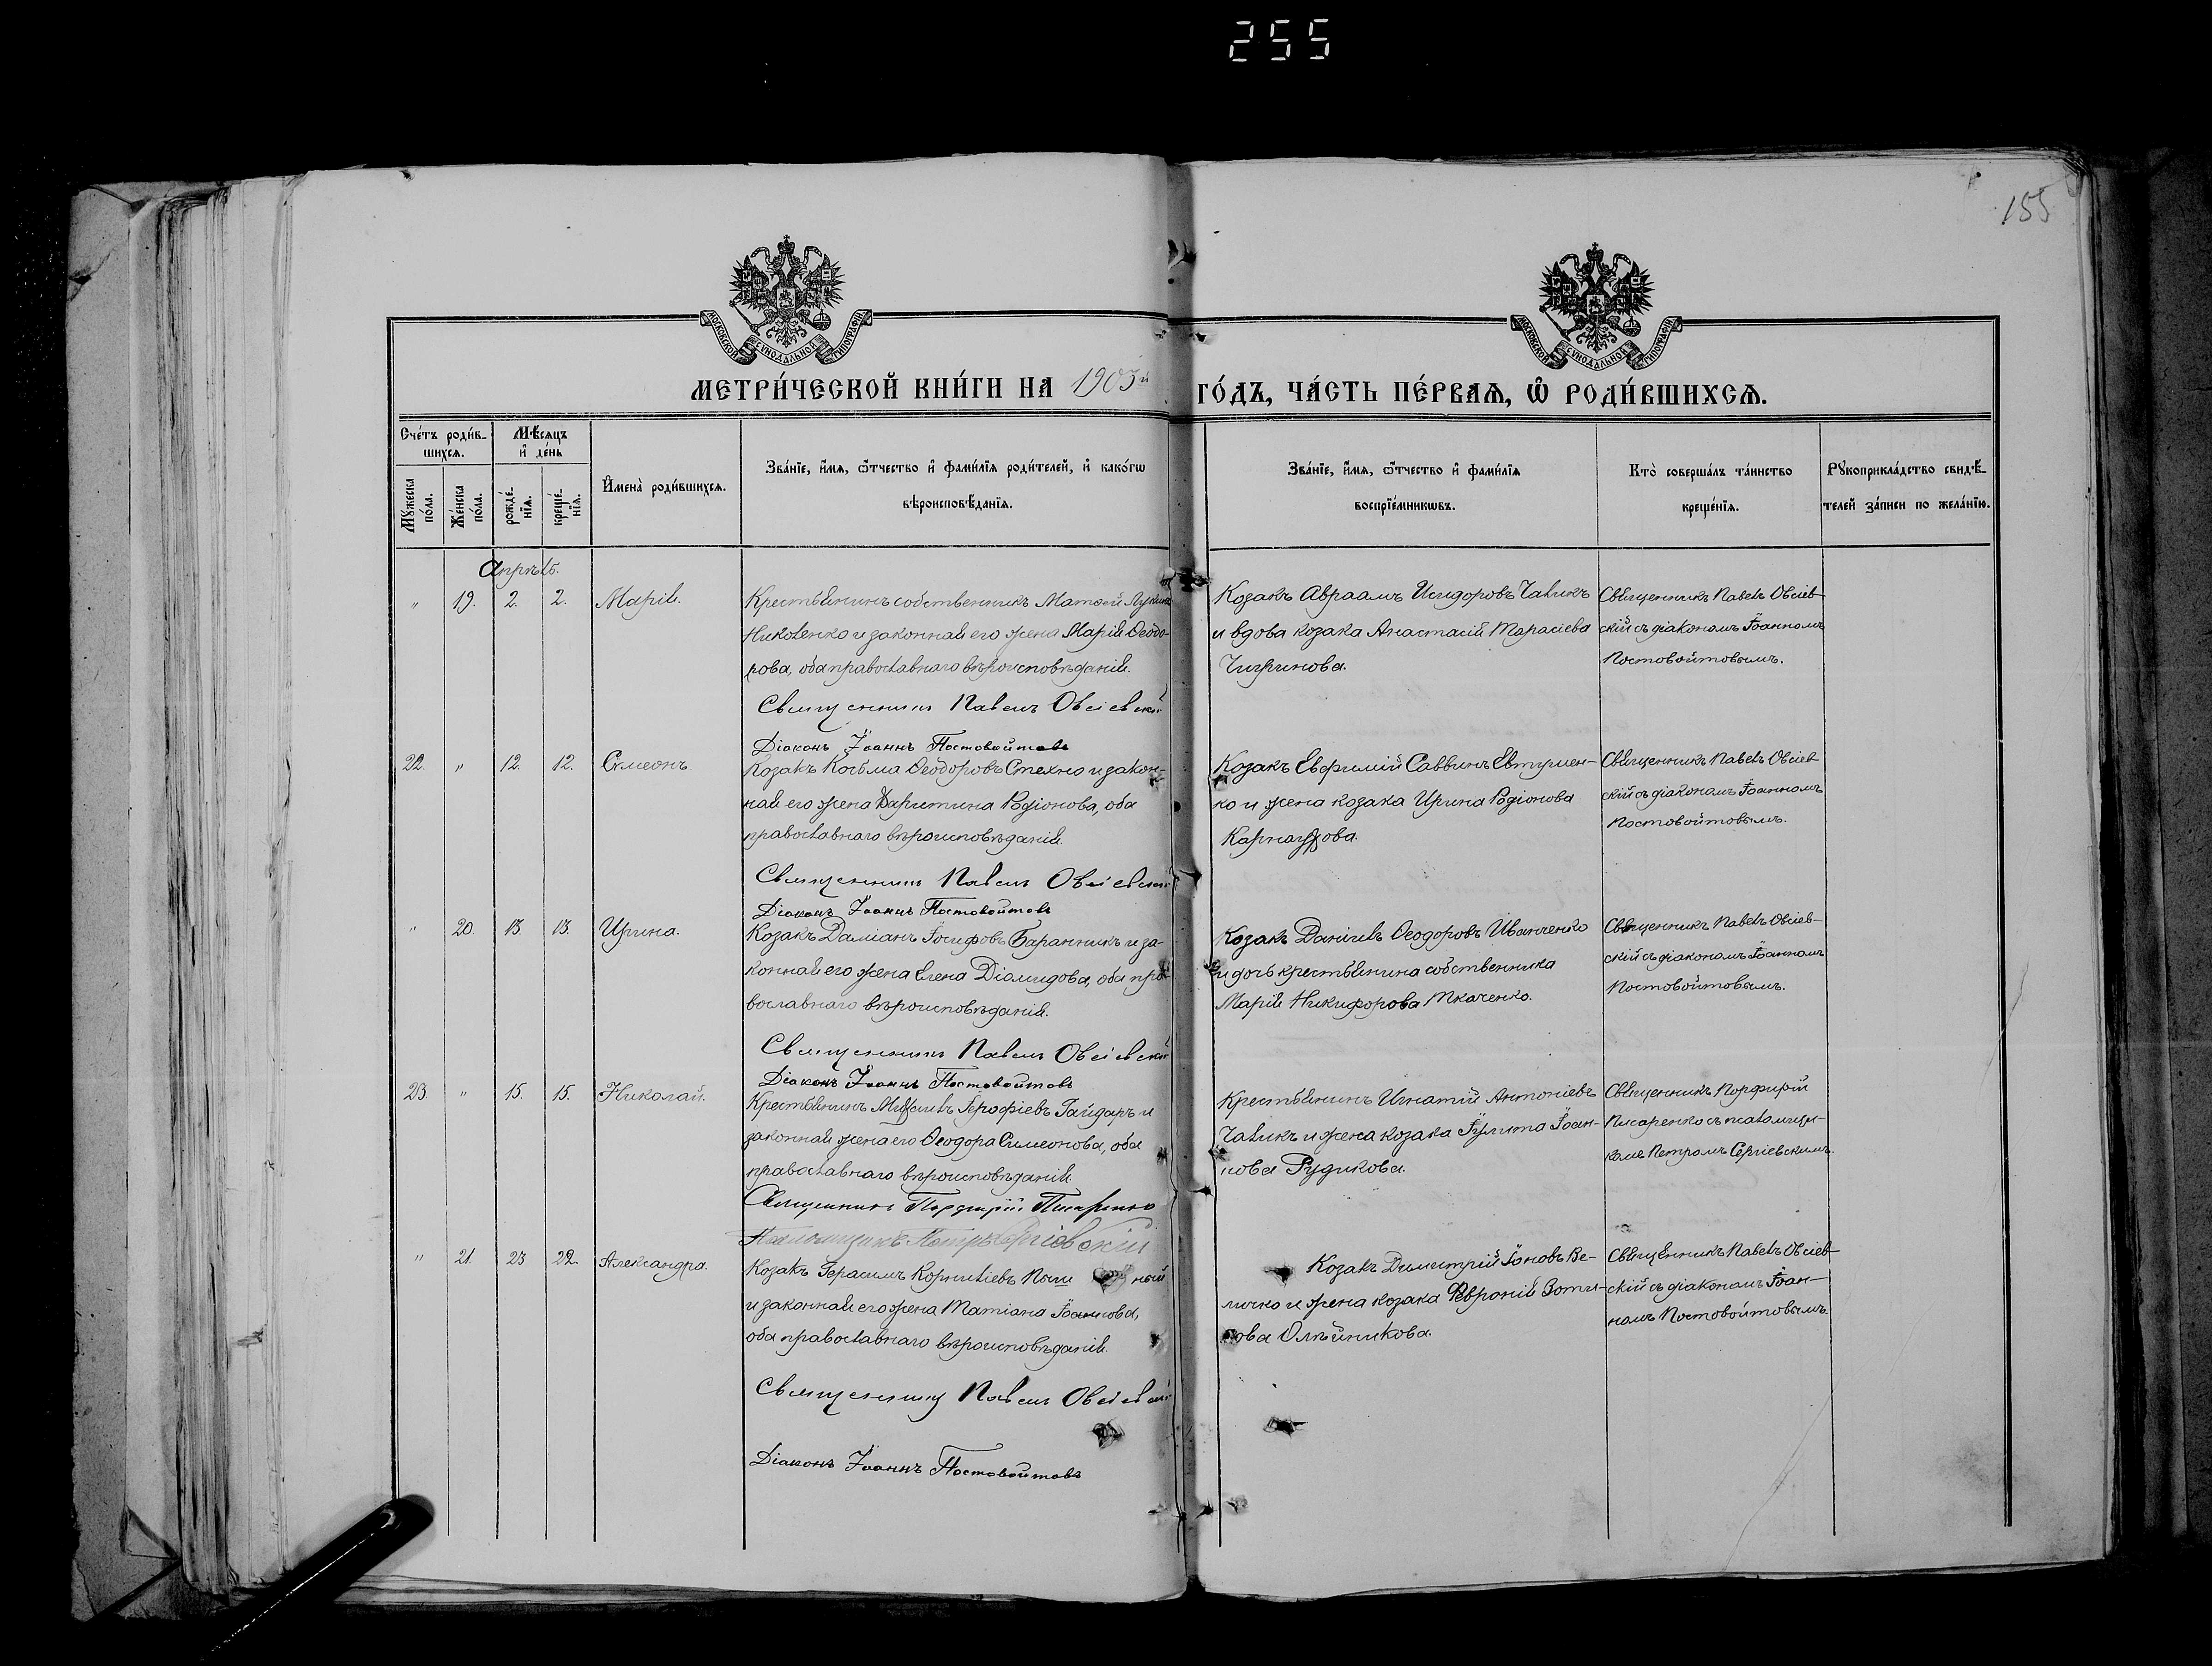 255
155
МОСКОВСКОЙ СѴНОДАЛЬНОЙ ТИПОГРАФІИ
МОСКОВСКОЙ СѴНОДАЛЬНОЙ ТИПОГРАФІИ
МЕТРИ́ЧЕСКОЙ КНИ́ГИ НА 1903й ГО́ДЪ, ЧА́СТЬ ПЕ́РВАЯ, Ѡ҆ РОДИ́ВШИХСЯ.
Сче́тъ роди́в-
шихся.
Мѣ́сяцъ
и҆ де́нь
Мꙋ́жеска
по́ла.
Же́нска
по́ла.
рожде́-
нїя.
креще́-
нїя.
И҆мена̀ роди́вшихся.
Зва́нїе, и҆́мя, ѻ҆́тчество и҆ фами́лїя роди́телей, и҆ како́гѡ
вѣроисповѣ́данїя.
Зва́нїе, и҆́мя, ѻ҆́тчество и҆ фами́лїя
воспрїе́мникѡвъ.
Кто̀ соверша́лъ та́инство
креще́нїя.
Рꙋкоприкла́дство свидѣ́-
телей за́писи по жела́нїю.
Апрѣль.
" 19. 2. 2. Марія.
Крестьянинъ собственникъ Матѳей Лукинъ
Николенко и законная его жена Марія Ѳеодо-
рова, оба православнаго вѣроисповѣданія.
Священникъ Павелъ Овсіевскій
Діаконъ Іоаннъ Постовойтовъ
Козакъ Авраамъ Исидоровъ Чаликъ
и вдова козака Анастасія Тарасіева
Чигринова.
Священникъ Павелъ Овсіев-
скій съ діакономъ Іоанномъ
Постовойтовымъ.
22. " 12. 12. Симеонъ
Козакъ Косьма Ѳеодоровъ Стехно и закон-
ная его жена Харитина Родіонова, оба
православнаго вѣроисповѣданія.
Священникъ Павелъ Овсіевскій
Діаконъ Іоаннъ Постовойтовъ
Козакъ Евфимій Саввинъ Евтушен-
ко и жена козака Ирина Родіонова
Карнаухова.
Священникъ Павелъ Овсіев-
скій съ діакономъ Іоанномъ
Постовойтовымъ.
" 20. 13. 13. Ирина.
Козакъ Даміанъ Іосифовъ Баранникъ и за-
конная его жена Елена Діамидова, оба пра-
вославнаго вѣроисповѣданія.
Священникъ Павелъ Овсіевскій
Діаконъ Іоаннъ Постовойтовъ
Козакъ Даніилъ Ѳеодоровъ Иванченко
и дочь крестьянина собственника
Марія Никифорова Ткаченко.
Священникъ Павелъ Овсіев-
скій съ діакономъ Іоанномъ
Постовойтовымъ.
23. " 15. 15. Николай.
Крестьянинъ Михаилъ Герофіевъ Гайдаръ и
законная жена его Ѳеодора Симеонова, оба
православнаго вѣроисповѣданія.
Священникъ Порфирій Писаренко
Псаломщикъ Петръ Сергіевскій
Крестьянинъ Игнатій Антоніевъ
Чаликъ и жена козака Іулита Іоан-
нова Рудикова.
Священникъ Порфирій
Писаренко съ псаломщи-
комъ Петромъ Сергіевскимъ.
" 21. 23 22. Александра.
Козакъ Герасимъ Корниліевъ ный
и законная его жена Татіана Іоаннова,
оба православнаго вѣроисповѣданія.
Священникъ Павелъ Овсіевскій
Діаконъ Іоаннъ Постовойтовъ
Козакъ Димитрій Іоновъ Ве-
личко и жена козака Февронія Зоти-
кова Олѣйникова.
Священникъ Павелъ Овсіев-
скій съ діакономъ Іоан-
номъ Постовойтовымъ.